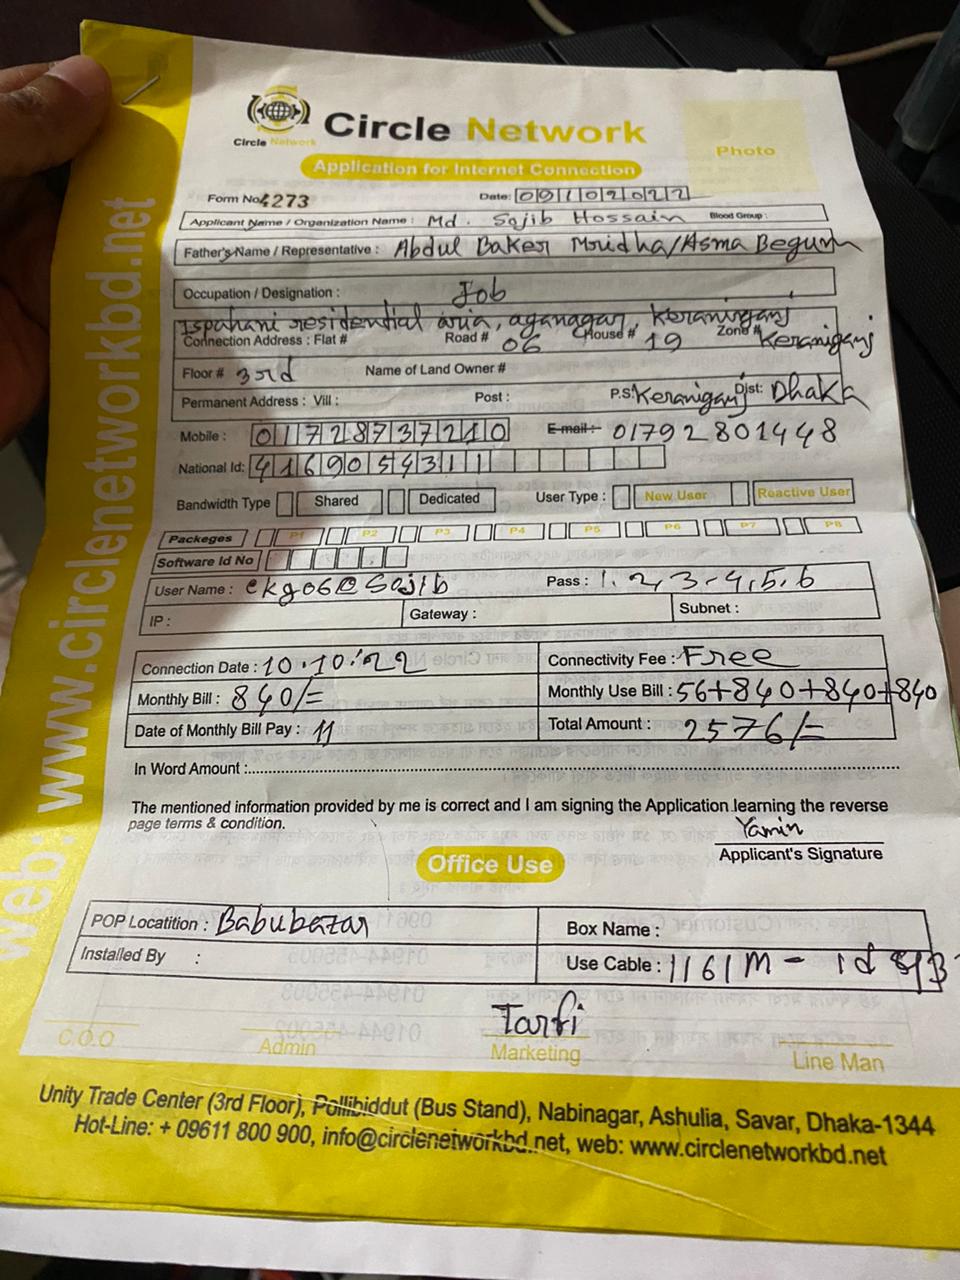 Circle Network
Circle Network
Application for Internet Connection
Photo
Form No. 4273
Date: 09102022
Applicant Name / Organization Name : Md. Sojib Hossain Blood Group :
Father's Name / Representative : Abdul Baker Mridha/Asma Begum
Occupation / Designation : Job
Ispahani residential aria, aganagar, Keraniganj
Connection Address : Flat # Road # 06 House # 19 Zone # Keraniganj
Floor # 3rd Name of Land Owner #
Permanent Address : Vill : Post : P.S: Keraniganj Dist: Dhaka
Mobile : 01728737210 E-mail : 01792801448
National Id: 4169054311
Bandwidth Type Shared Dedicated User Type : New User Reactive User
Packeges P1 P2 P3 P4 P5 P6 P7 P8
Software Id No
User Name : ckg06@Sajib Pass : 1,2,3,4,5,6
IP : Gateway : Subnet :
Connection Date : 10.10.'22 Connectivity Fee : Free
Monthly Bill : 840/= Monthly Use Bill : 56+840+840+840
Date of Monthly Bill Pay : 11 Total Amount : 2576/=
In Word Amount :
The mentioned information provided by me is correct and I am signing the Application learning the reverse
page terms & condition.
Yamin
Applicant's Signature
Office Use
POP Locatition : Babubazar Box Name :
Installed By : Use Cable : 1161M -
Tarfi
C.O.O Admin Marketing Line Man
Unity Trade Center (3rd Floor), Pollibiddut (Bus Stand), Nabinagar, Ashulia, Savar, Dhaka-1344
Hot-Line: + 09611 800 900, info@circlenetworkbd.net, web: www.circlenetworkbd.net
web: www.circlenetworkbd.net